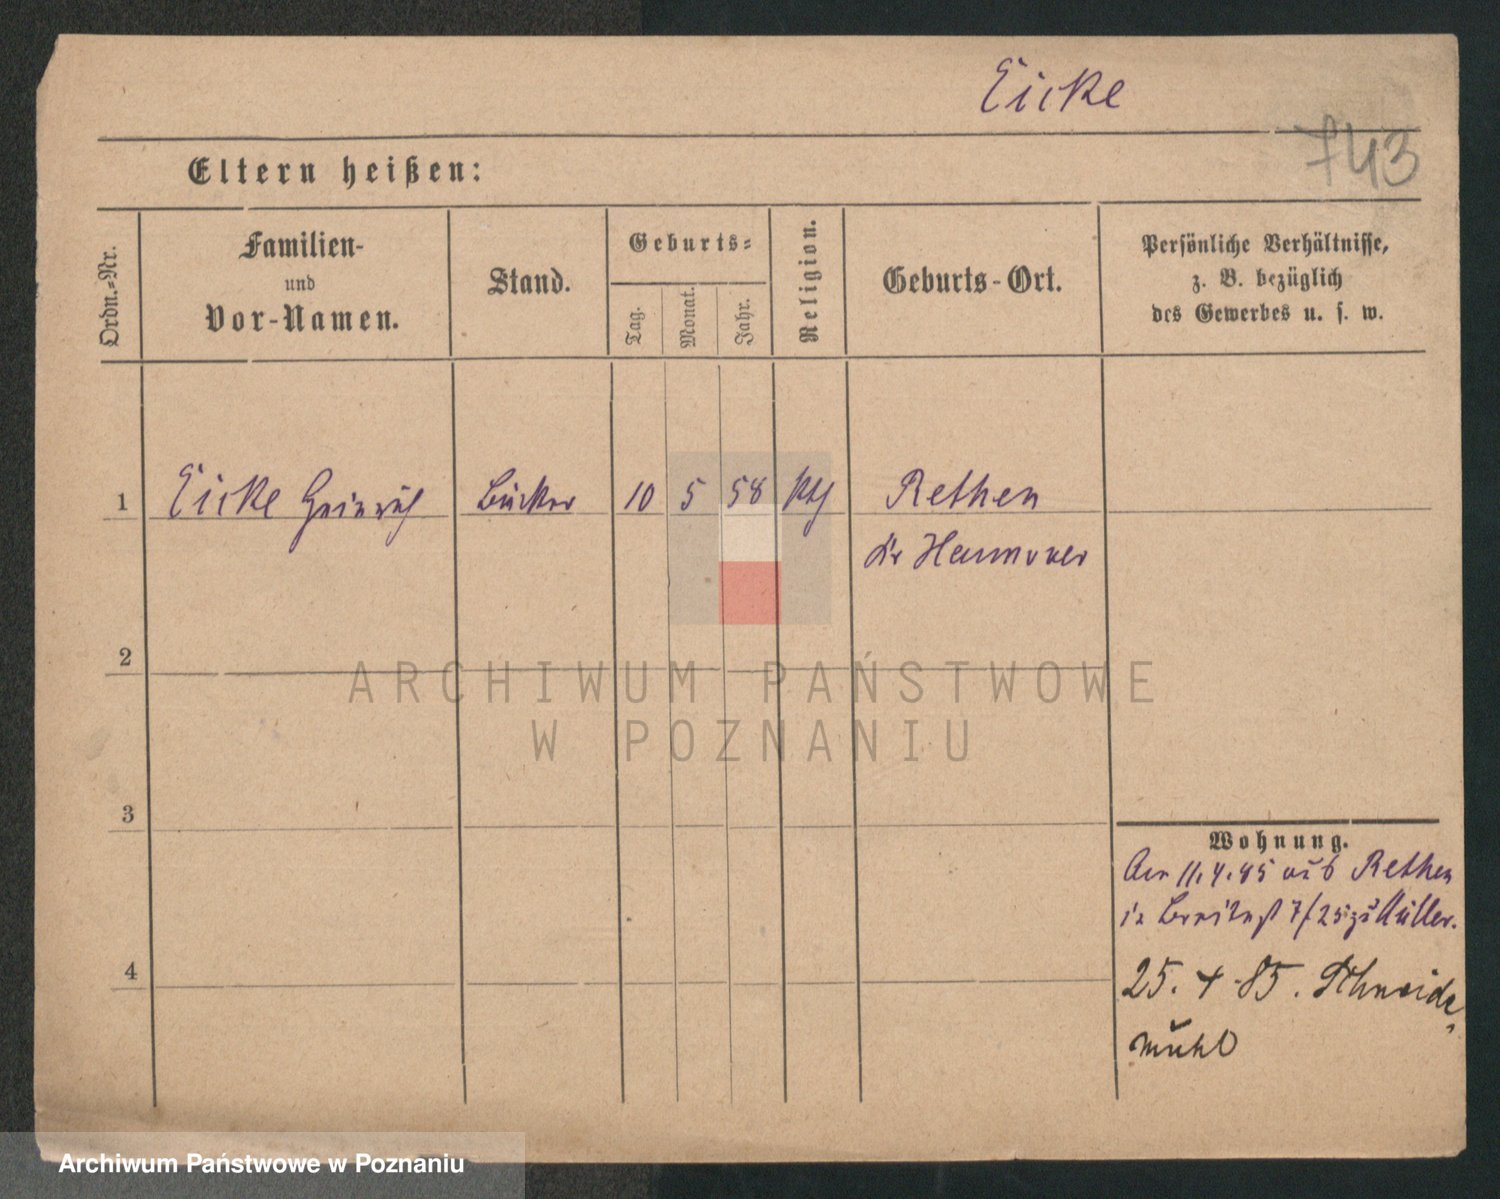 Eicke
743
Eltern heißen:
Ordn.-Nr.
Familien-
und
Vor-Namen.
Stand.
Geburts-
Tag.
Monat.
Jahr.
Religion.
Geburts-Ort.
Persönliche Verhältnisse,
z. B. bezüglich
des Gewerbes u. s. w.
1 Eicke Heinrich 10 5 58 Rethen
Hannover
2
ARCHIWUM PAŃSTWOWE
W POZNANIU
3
Wohnung.
11.4.85 aus Rethen
in Breitestr 7/25 zu Müller.
4
25. 4 85. Schneide-
mühl
Archiwum Państwowe w Poznaniu